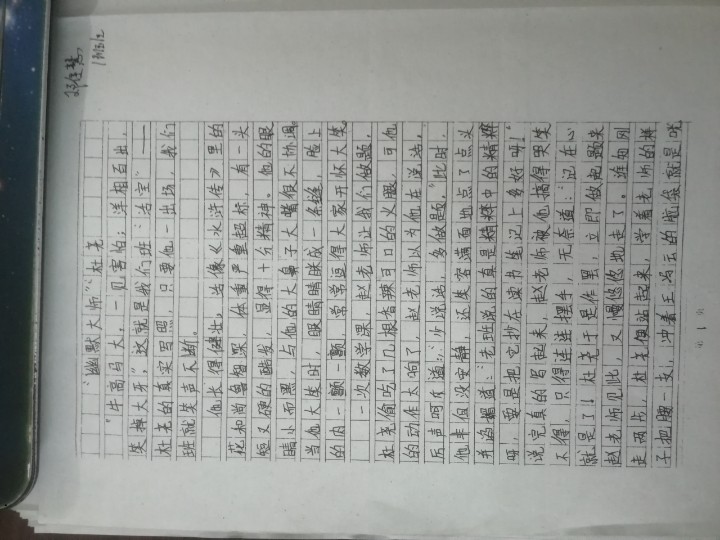 邓佳慧
“幽默大师”:杜尧
“牛高马大,一见害怕;洋相百出,
笑掉大牙”,这就是我们班“活宝”——
杜尧的真实写照,只要他一出场,我们
班就笑声不断。
他长得健壮,活像《水浒传》里的
花和尚鲁智深,体重严重超标,有一头
短又硬的酷发,显得十分精神。他的眼
睛小而黑,与他的大鼻子大嘴很不协调。
当他大笑时,眼睛瞄眯成一条缝,脸上
的肉一颤一颤,常常逗得大家开怀大笑。
一次数学课,赵老师让我们做题,
杜尧偷吃了几根香辣可口的火腿,可他
的动作太响了,赵老师以为他在说话,
厉声呵斥道:“少说话,多做题。”此时,
他非但没安静,还笑容满面地点了点头
并谄媚道:“老班说的真是精粹中的精粹
呀,要是把它抄在读书笔记上多好呀!”
说完真的写起来,赵老师被他搞得哭笑
不得,只得连连摆手,无奈道:“记在心
就是了!”杜尧于是作罢,立即做起题来
赵老师见此,又慢悠悠地走了。谁知刚
走两步,杜尧便站起来,学着老师的样
子把腰一叉,冲着王冯云的瓶袋就是咣
第 1 页